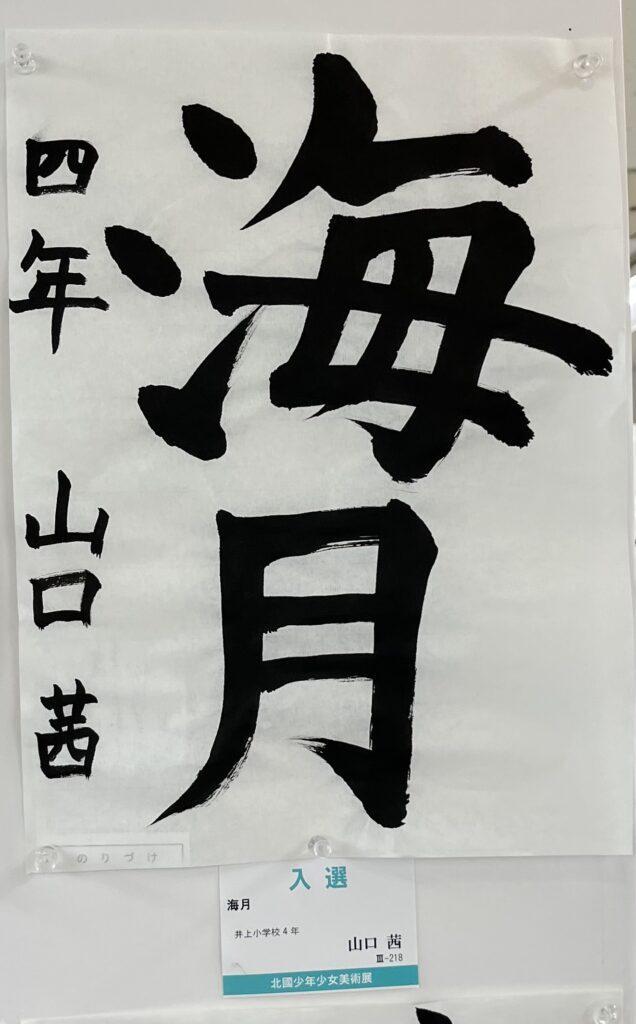 海月
四年 山口 茜
のりづけ
入選
海月
井上小学校4年
山口 茜
Ⅲ-218
北國少年少女美術展